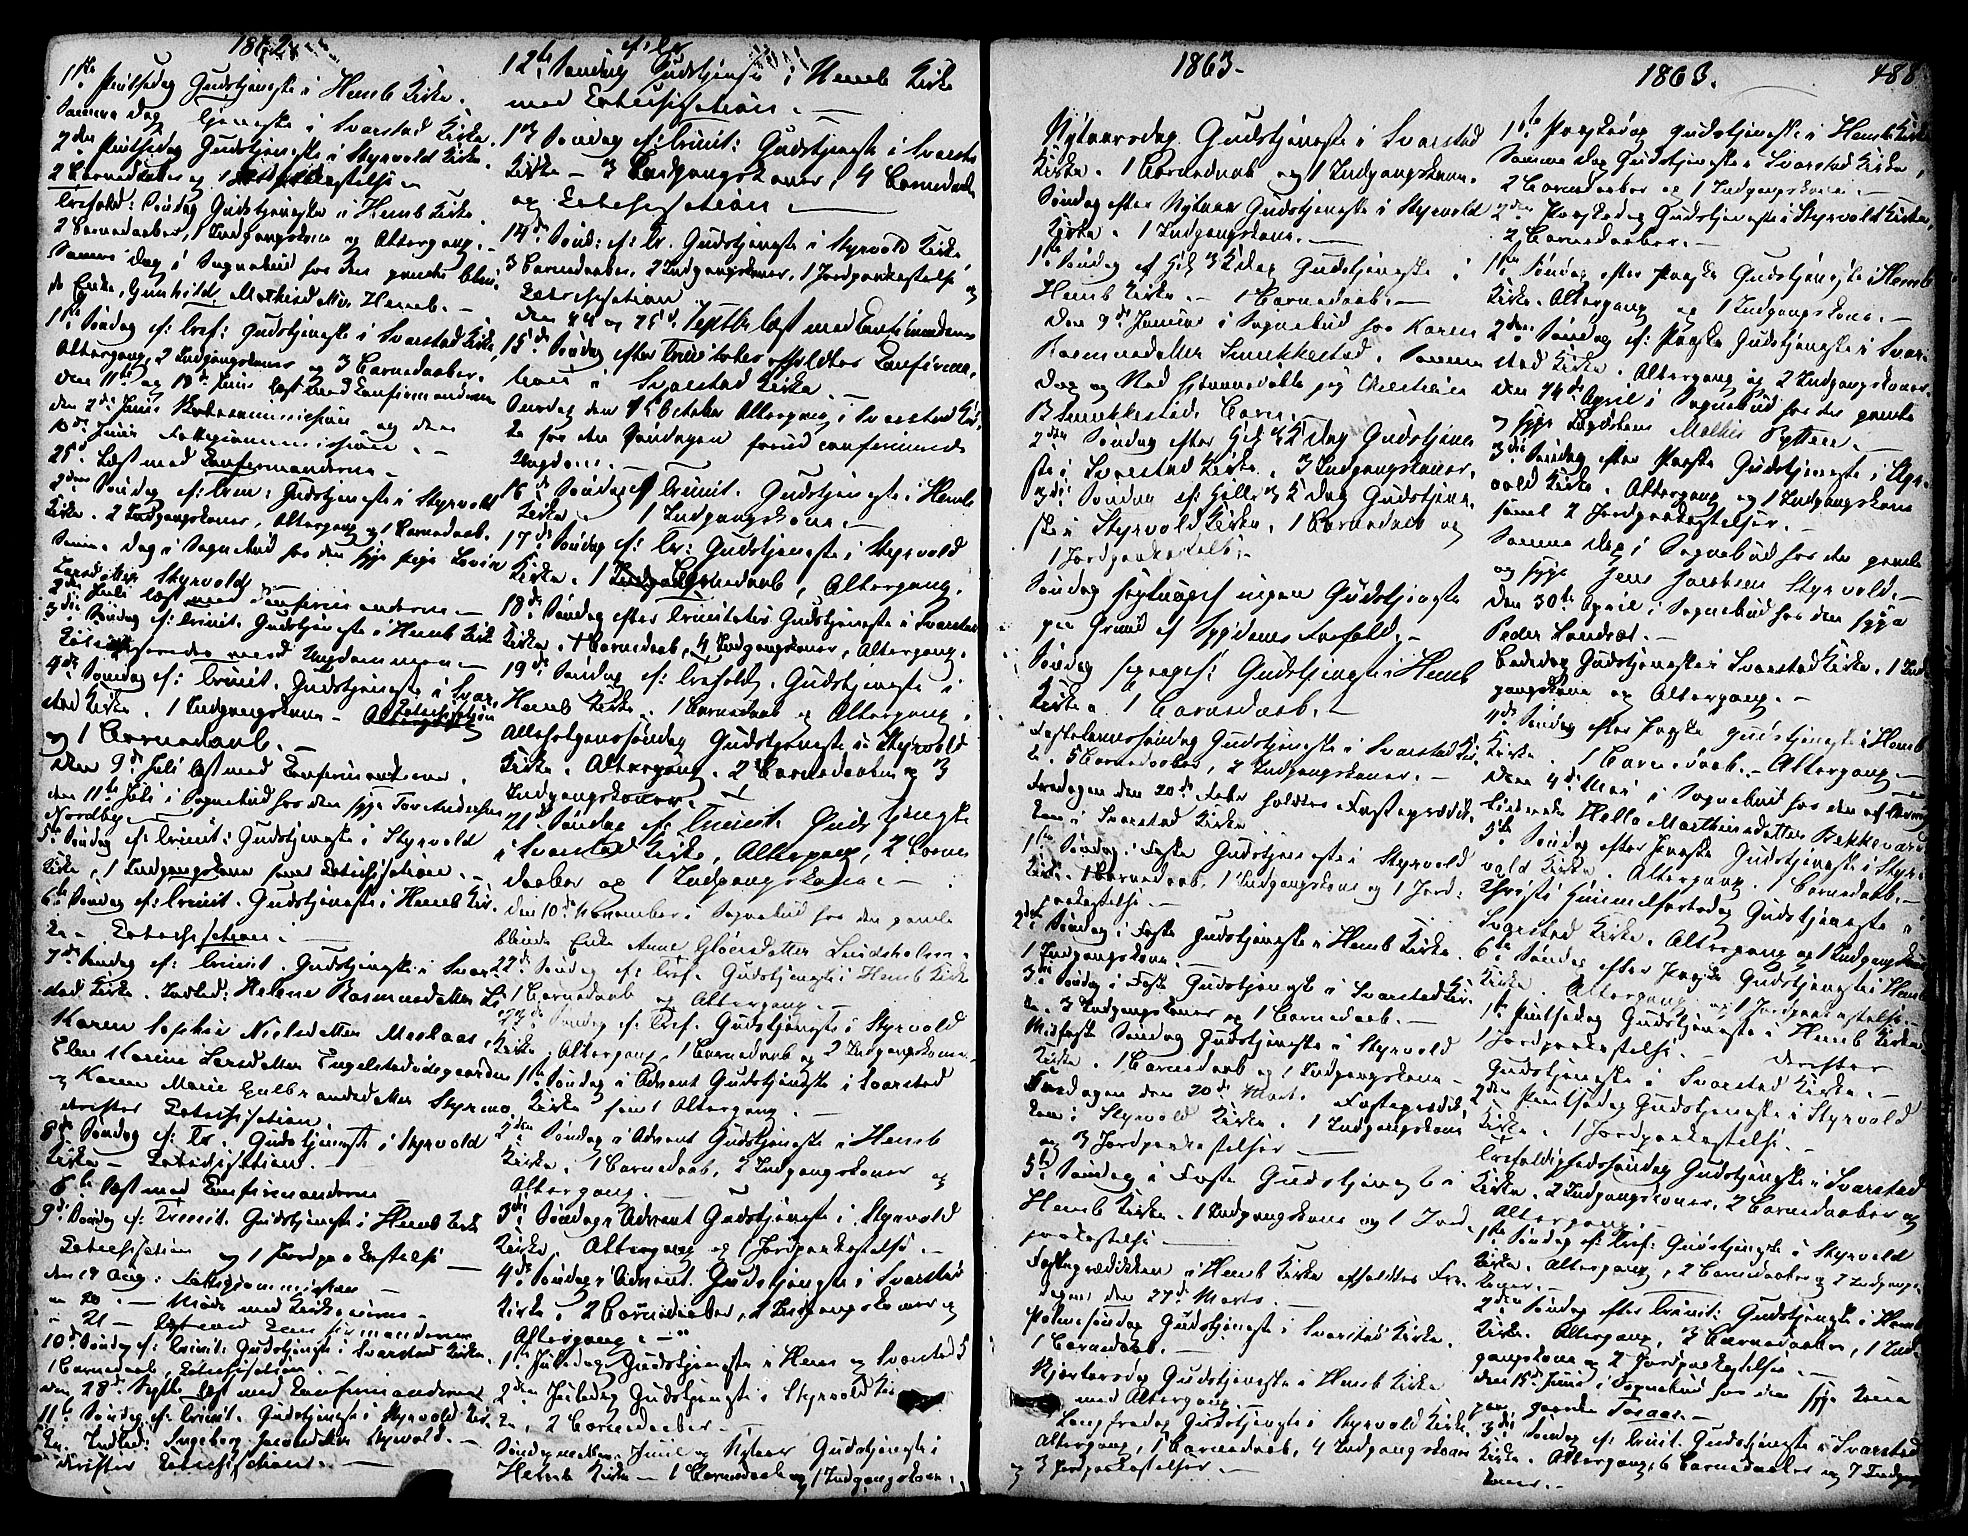 1862
1ste Pintsedag Gudstjeneste i Hemb Kirke.
Samme Dag tjeneste i Svarstad Kirke.
2den Pintsedag Gudstjeneste i Styrvold Kirke.
2 Barnedaaber og 1
Trefold: Søndag Gudstjeneste i Hemb Kirke.
2 Barnedaaber, 1 Indgangskone og Altergang. -
Samme Dag i Sognebud hos den gamle blin-
de Enke, Gunhild Mathisdatter Hemb. -
1ste Søndag ef: Tref: Gudstjeneste i Svarstad Kirke,
Altergang, 2 Indgangskoner og 3 Barnedaaber.
Den 11te og 18de Juni læst med Confirmanderne
den 2de Juni Skolecommission og den
10de Juni Fattigcommission. -
25de Læst med Confirmanderne -
2den Søndag ef: Trin: Gudstjeneste i Styrvold
Kirke. 2 Indgangskoner, Altergang og 1 Barnedaab.
Samme Dag i Sognebud hos den syge Pige
Styrvold -
2den Juli læst med Confirmanderne -
3die Søndag ef: Trinit. Gudstjeneste i Hemb Kirke
med Ungdommen -
4de Søndag ef: Trinit. Gudstjeneste i Svar-
stad Kirke. 1 Indgangskone - Catechisation
og 1 Barnedaab. -
Den 9de Juli læst med Confirmanderne.
den 11te Juli i Sognebud hos den syge Tor Andersen
Nordby -
5te Søndag ef: Trinit: Gudstjeneste i Styrvold
Kirke, 1 Indgangskone samt Catechisation. -
6te Søndag ef: Trinit. Gudstjeneste i Hemb Kir-
ke - Catechisation. -
7de Søndag ef: Trinit. Gudstjeneste i Svar-
stad Kirke. Indled: Helene Rasmusdatter
Karen Sophie Nielsdatter
Elen Karine Larsdatter Engelstadødegaarden
og Karen Marie Gulbrandsdatter Styrmo
derefter Catechisation.
8de Søndag ef: Tr. Gudstjeneste i Styrvold
Kirke - Catechisation. -
6te læst med Confirmanderne
9de Søndag ef: Trinit. Gudstjeneste i Hemb Kirke
Catechisation og 1 Jordpaakastelse -
den 19 Aug: Fattigcommission -
" 20 - Møde med Kirkeeierne -
" 21 - Læst med Confirmanderne
10de Søndag ef: Trinit: Gudstjeneste i Svarstad Kirke.
1 Barnedaab, Catechisation. -
den 28de læst med Confirmanderne
11te Søndag ef: Trinit. Gudstjeneste i Styrvold Kir-
ke. Indled: Ingeborg Jacobsdatter Styrvold. -
derefter Catechisation. -
12te Søndag Gudstjeneste i Hemb Kirke
med Catechisation. -
13 Søndag ef: Trinit: Gudstjeneste i Svarstad
Kirke - 3 Indgangskoner, 4 Barnedaab
og Catechisation. -
14de Sønd: ef: Tr. Gudstjeneste i Styrvold Kirke
3 Barnedaaber, 2 Indgangskoner, 1 Jordpaakastelse og
Catechisation
læst med Confirmanderne
15de Søndag efter Trinitatis afholdtes Confirma-
tion i Svarstad Kirke.
Onsdag den October Altergang i Svarstad Kir-
ke for den Søndagen forud confirmerede
Ungdom. -
16de Søndag ef Trinit. Gudstjeneste i Hemb
Kirke. 1 Indgangskone. -
17de Søndag ef: Tr: Gudstjeneste i Styrvold
Kirke. 1 Barnedaab, Altergang.
18de Søndag efter Trinitatis Gudstjeneste i Svarstad
Kirke. 1 Barnedaab, 4 Indgangskoner, Altergang.
19de Søndag ef: Trefold. Gudstjeneste i
Hemb Kirke. 1 Barnedaab og Altergang.
Allehelgenssøndag Gudstjeneste i Styrvold
Kirke. Altergang. 2 Barnedaaber og 3
Indgangskoner. -
21de Søndag ef: Trinit. Gudstjeneste
i Svarstad Kirke, Altergang, 2 Barne-
daaber og 1 Indgangskone. -
Den 10de November i Sognebud hos den gamle
blinde Enke Anne
22de Søndag ef: Tref. Gudstjeneste i Hemb Kirke
1 Barnedaab og Altergang. -
Søndag ef: Tref. Gudstjeneste i Styrvold
Kirke. Altergang, 1 Barnedaab og 2 Indgangskoner
1ste Søndag i Advent Gudstjeneste i Svarstad
Kirke samt Altergang. -
2den Søndag i Advent Gudstjeneste i Hemb
Kirke. 1 Barnedaab, 2 Indgangskoner og
Altergang. -
3die Søndag i Advent Gudstjeneste i Styrvold
Kirke. Altergang og 1 Jordpaakastelse. -
4de Søndag i Advent. Gudstjeneste i Svarstad
Kirke. 2 Barnedaaber, 2 Indgangskoner og
Altergang. -
1ste Juledag Gudstjeneste i Hem og Svarstad
2den Juledag Gudstjeneste i Styrvold Kir-
ke, 2 Barnedaaber. -
Søndag mellem Juul og Nytaar Gudstjeneste i
Hemb Kirke - 1 Barnedaab og 1 Indgangskone.
1863-
Nytaarsdag Gudstjeneste i Svarstad
Kirke. 1 Barnedaab og 1 Indgangskone.
Søndag efter Nytaar Gudstjeneste i Styrvold
Kirke. 1 Indgangskone. -
1ste Søndag ef Hel 3 K dag Gudstjeneste i
Hemb Kirke. - 1 Barnedaab. -
Den 9de Januar i Sognebud hos Karen
Rasmusdatter Smukkestad. Samme
Dag og Sted hjemmedøbte jeg Christian
Smukkestads Barn. -
2den Søndag efter Hel 3 K dag Gudstjene-
ste i Svarstad Kirke. 3 Indgangskoner.
3die Søndag ef: Hell 3 K dag Gudstjene-
ste i Styrvold Kirke. 1 Barnedaab og
1 Jordpaakastelse. -
Søndag septuages ingen Gudstjeneste
paa Grund af Sygdoms Forfald. -
Søndag sexages: Gudstjeneste i Hemb
Kirke 1 Barnedaab. -
Fastelavnssøndag Gudstjeneste i Svarstad Kir-
ke. 5 Barnedaaber, 2 Indgangskoner. -
Fredagen den 20de Febr holdtes Fasteprædik-
ken i Svarstad Kirke
1ste Søndag i Faste Gudstjeneste i Styrvold
Kirke. 1 Barnedaab, 1 Indgangskone og 1 Jord-
paakastelse. -
2den Søndag i Faste Gudstjeneste i Hemb Kirke.
1 Indgangskone. -
3die Søndag i Faste Gudstjeneste i Svarstad Kir-
ke. 3 Indgangskoner og 1 Barnedaab. -
Midfaste Søndag Gudstjeneste i Styrvold
Kirke. 1 Barnedaab og 1 Indgangskone -
Fredagen den 20de Marts Fasteprædik-
ken i Styrvold Kirke. 1 Indgangskone
og 3 Jordpaakastelser -
5te Søndag i Faste Gudstjeneste i
Hemb Kirke. 1 Indgangskone og 1 Jord-
paakastelse -
Fasteprædikken i Hemb Kirke afholdtes Fre-
dagen den 27de Marts. -
Palmesøndag Gudstjeneste i Svarstad Kirke.
1 Barnedaab. -
Skjærtorsdag Gudstjeneste i Hemb Kirke
med Altergang.
Langfredag Gudstjeneste i Styrvold Kirke
Altergang, 1 Barnedaab, 4 Indgangskoner
og 3 Jordpaakastelser. -
1863. 488
1ste Paaskedag Gudstjeneste i Hemb Kirke
Samme Dag Gudstjeneste i Svarstad Kirke,
2 Barnedaaber og 1 Indgangskone. -
2den Paaskedag Gudstjeneste i Styrvold Kirke,
2 Barnedaaber. -
1ste Søndag efter Paaske Gudstjeneste i Hemb
Kirke. Altergang og 1 Indgangskone. -
2den Søndag ef: Paaske Gudstjeneste i Svar-
stad Kirke. Altergang og 2 Indgangskoner.
Den April i Sognebud hos den gamle
og syge Mathis
3die Søndag efter Paaske Gudstjeneste i Styr-
vold Kirke. Altergang og 1 Indgangskone
samt 2 Jordpaakastelser. -
Samme Dag i Sognebud hos den gamle
og syge Jens Jacobsen Styrvold. -
Den 30te April i Sognebud hos den syge
Peder Landsæt. -
Bededag Gudstjeneste i Svarstad Kirke. 1 Ind-
gangskone og Altergang. -
4de Søndag efter Paaske Gudstjeneste i Hemb
Kirke. 1 Barnedaab. - Altergang. -
Den 4de Mai i Sognebud hos den af
lidende Helle Marthinsdatter Bekkevar
5te Søndag efter Paaske Gudstjeneste i Styr-
vold Kirke. Altergang. 1 Barnedaab. -
Christi Himmelfartsdag Gudstjeneste i
Svarstad Kirke. Altergang og 1 Indgangskone
6te Søndag efter Paaske Gudstjeneste i Hemb
Kirke. Altergang og 1 Jordpaakastelse. -
1ste Pintsedag Gudstjeneste i Hemb Kirke
1 Jordpaakastelse. - derefter
Gudstjeneste i Svarstad Kirke. -
2den Pintsedag Gudstjeneste i Styrvold
Kirke. 1 Jordpaakastelse. -
Trefoldighedssøndag Gudstjeneste i Svarstad
Kirke. 2 Indgangskoner, 2 Barnedaaber og
Altergang. -
1ste Søndag ef: Tref: Gudstjeneste i Styrvold
Kirke. Altergang, 2 Barnedaaber og 2 Indgangs-
koner. -
2den Søndag efter Trinit: Gudstjeneste i Hemb
Kirke. Altergang, 3 Barnedaaber, 1 Ind-
gangskone og 2 Jordpaakastelse. -
Den 15de Juni i Sognebud hos den syge Kone
paa Gaarden -
3die Søndag ef: Trinit. Gudstjeneste i Svarstad
Kirke. Altergang, 6 Barnedaaber og 7 Indgangs-
koner. -